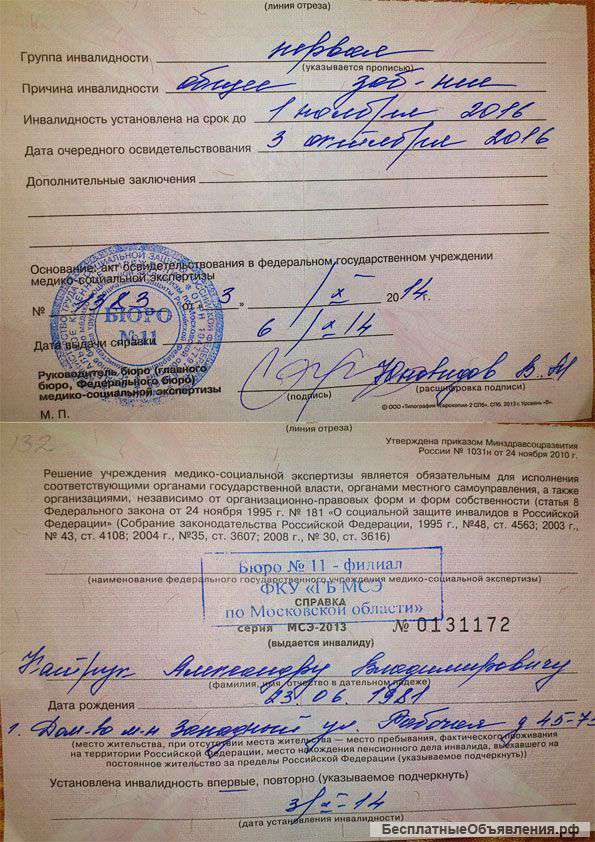 (линия отреза)
Группа инвалидности первая
(указывается прописью)
Причина инвалидности общее заб-ние
Инвалидность установлена на срок до 1 ноября 2016
Дата очередного освидетельствования 3 октября 2016
Дополнительные заключения
Основание: акт освидетельствования в федеральном государственном учреждении
медико-социальной экспертизы
№ 1383 от « 3 » X 2014 г.
БЮРО
№11
Дата выдачи справки 6 X 14
Руководитель бюро (главного
бюро, Федерального бюро)
медико-социальной экспертизы
(подпись) (расшифровка подписи)
М. П.
© ООО «Типография
(линия отреза)
132
Утверждена приказом Минздравсоцразвития
России № 1031н от 24 ноября 2010 г.
Решение учреждения медико-социальной экспертизы является обязательным для исполнения
соответствующими органами государственной власти, органами местного самоуправления, а также
организациями, независимо от организационно-правовых форм и форм собственности (статья 8
Федерального закона от 24 ноября 1995 г. № 181 «О социальной защите инвалидов в Российской
Федерации» (Собрание законодательства Российской Федерации, 1995 г., №48, ст. 4563; 2003 г.,
№ 43, ст. 4108; 2004 г., №35, ст. 3607; 2008 г., № 30, ст. 3616)
Бюро № 11 - филиал
(наименование федерального государственного учреждения медико-социальной экспертизы)
ФКУ «ГБ МСЭ
СПРАВКА
по Московской области»
серия МСЭ-2013 № 0131172
(выдается инвалиду)
Александру Владимировичу
(фамилия, имя, отчество в дательном падеже)
Дата рождения 23. 06. 1988
г. Дом-во м-н Западный ул. Рабочая д 45-73
(место жительства, при отсутствии места жительства — место пребывания, фактического проживания
на территории Российской Федерации, место нахождения пенсионного дела инвалида, выехавшего на
постоянное жительство за пределы Российской Федерации (указываемое подчеркнуть))
Установлена инвалидность впервые, повторно (указываемое подчеркнуть)
3 X-14
(дата установления инвалидности)
БесплатныеОбъявления.рф